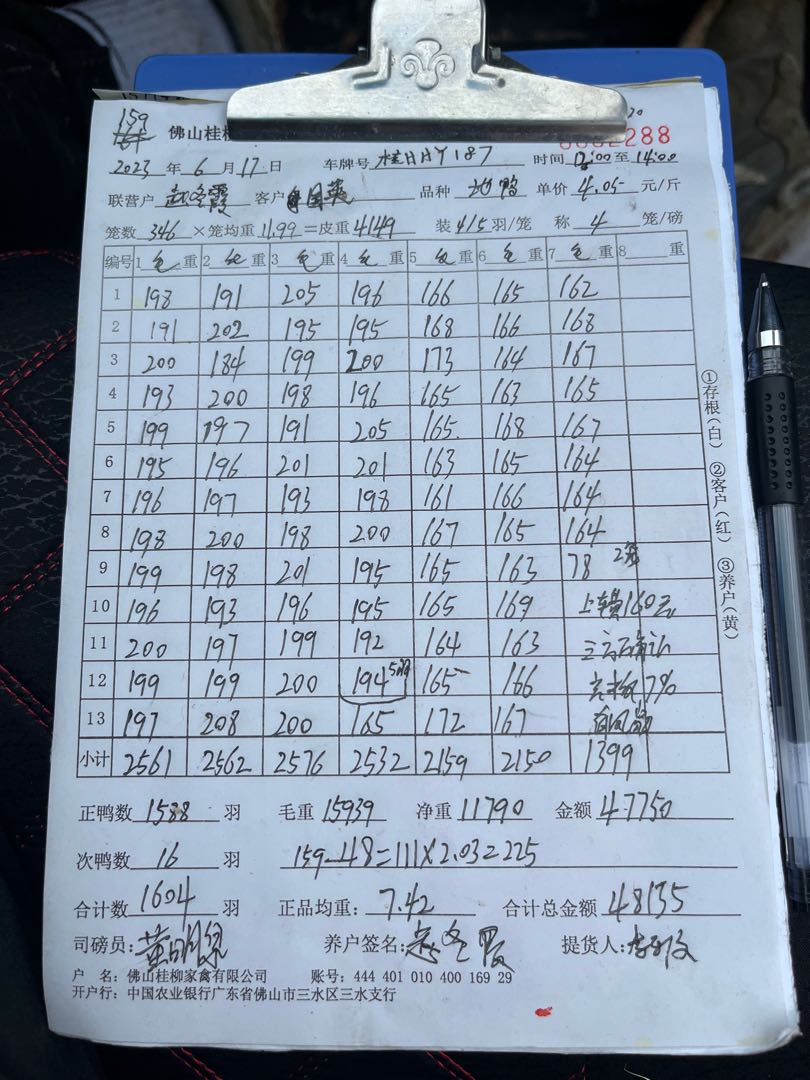 159
佛山桂柳
2288
2023 年 6 月 17 日 车牌号 桂HHY187 时间 12:00 至 14:00
联营户 赵冬霞 客户 品种 单价 4.05 元/斤
笼数 346 ×笼均重 11.99 =皮重 4149 装 4/5 羽/笼 称 4 笼/磅
编号 1 毛 重 2 毛 重 3 毛 重 4 毛 重 5 毛 重 6 毛 重 7 毛 重 8 重
1 198 191 205 196 166 165 162
2 191 202 195 195 168 166 168
3 200 184 199 200 173 164 167
4 193 200 198 196 165 163 165
5 199 197 191 205 165 168 167
6 195 196 201 201 163 165 164
7 196 197 193 198 161 166 164
8 198 200 198 200 167 165 164
9 199 198 201 195 165 163 78 2笼
10 196 193 196 195 165 169 上车费160元
11 200 197 199 192 164 163 三方确认
12 199 199 200 194 165 166 7%
13 197 208 200 165 172 167
小计 2561 2562 2576 2532 2159 2150 1399
正鸭数 1588 羽 毛重 15939 净重 11790 金额 47750
次鸭数 16 羽 159-48=111×2.03=225
合计数 1604 羽 正品均重: 7.42 合计总金额 48135
司磅员: 黄明 养户签名: 赵冬霞 提货人:
户 名: 佛山桂柳家禽有限公司 账号: 444 401 010 400 169 29
开户行: 中国农业银行广东省佛山市三水区三水支行
①存根(白) ②客户(红) ③养户(黄)